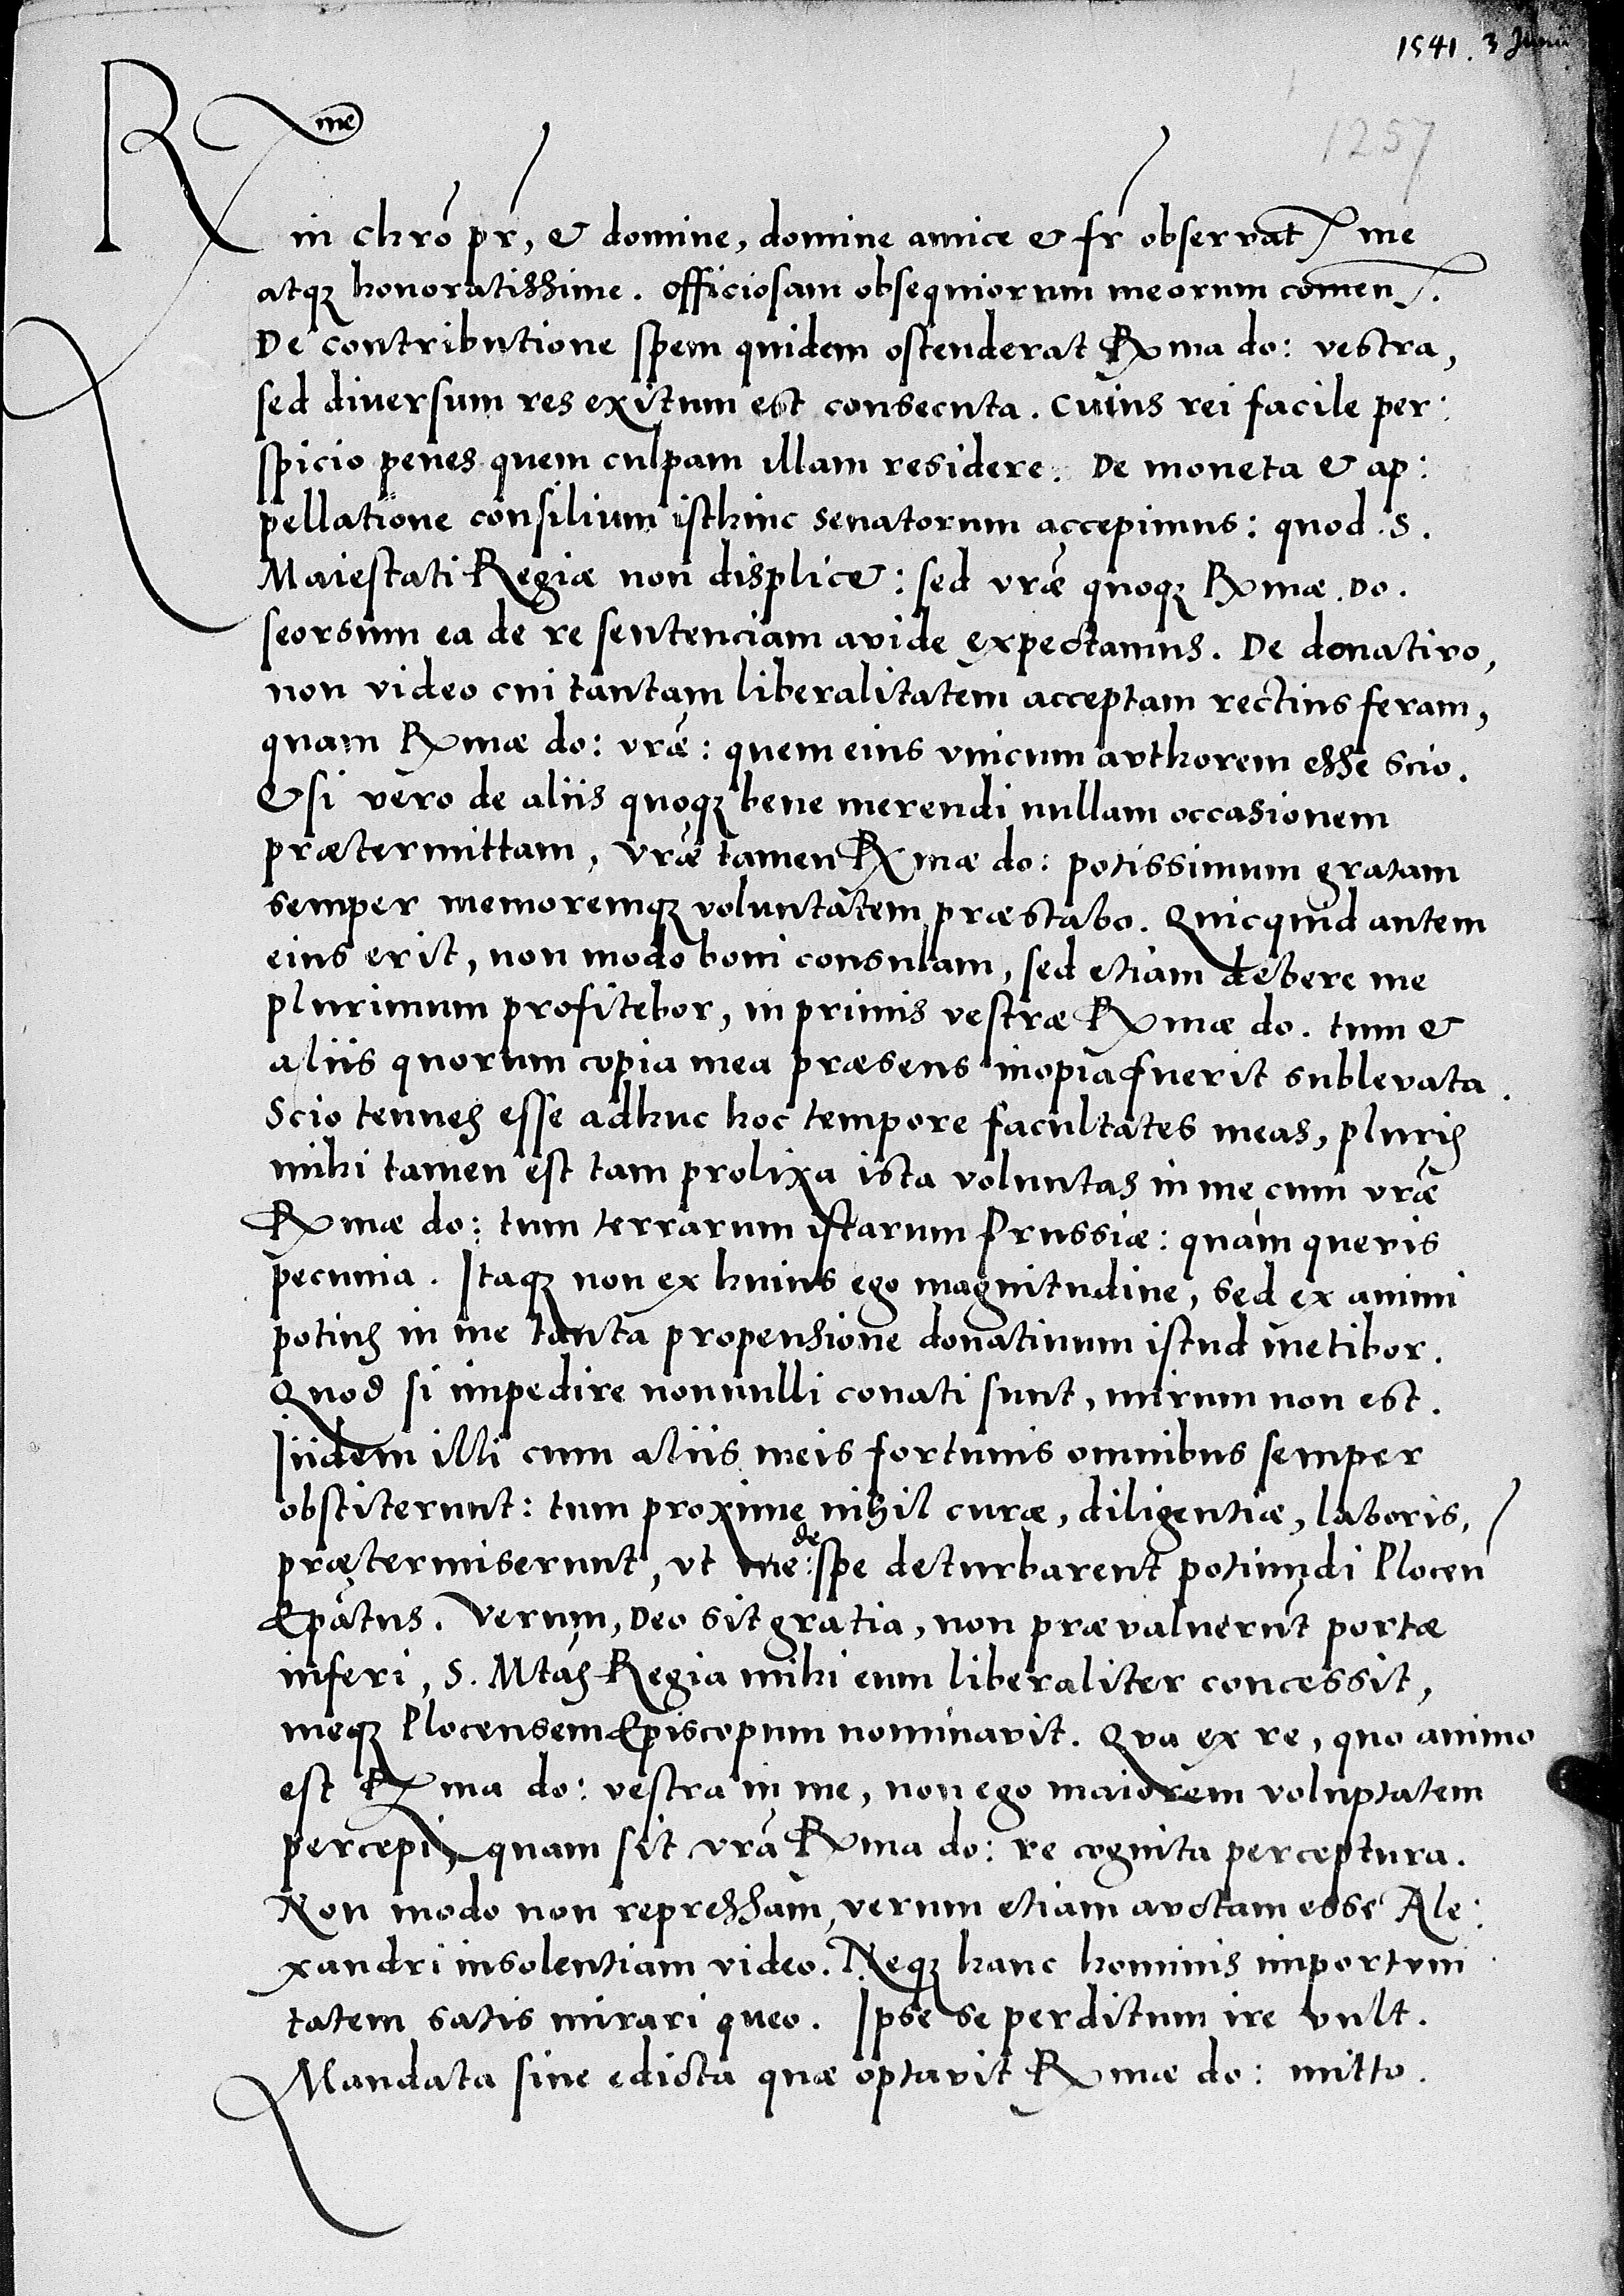 1541. 3 Junii
1257
Rme
in chro pr, & domine, domine amice & fr observat me
atqz honoratissime. Officiosam obsequiorum meorum comen.
De contributione spem quidem ostenderat Rx ma do: vestra,
sed diuersum res exitum est consecuta. Cuius rei facile per:
spicio penes quem culpam illam residere. De moneta & ap:
pellatione consilium isthinc senatorum accepimus: quod .S.
Maiestati Regiæ non displicet: sed vræ quoqz Rx mæ. Do.
seorsum ea de re sentenciam avide expectamus. De donativo,
non video cui tantam liberalitatem acceptam rectius feram,
quam Rx mæ do: vræ: quem eius vnicum avthorem esse scio.
Etsi vero de aliis quoqz bene merendi nullam occasionem
prætermittam, vræ tamen Rx mæ do: potissimum gratam
semper memoremqz voluntatem præstabo. Quicquid autem
eius erit, non modo boni consulam, sed etiam debere me
plurimum profitebor, in primis vestræ Rx mæ do. tum &
aliis quorum copia mea præsens inopia fuerit sublevata.
Scio tenues esse adhuc hoc tempore facultates meas, pluris
mihi tamen est tam prolixa ista voluntas in me cum vræ
Rx mæ do: tum terrarum istarum Prussiæ: quam quevis
pecunia. Itaqz non ex huius ego magnitudine, sed ex animi
potius in me tanta propensione donatiuum istud metibor.
Quod si impedire nonnulli conati sunt, mirum non est.
Iidem illi cum aliis meis fortunis omnibus semper
obstiterunt: tum proxime nihil curæ, diligentiæ, laboris,
prætermiserunt, vt me: de spe deturbarent potiundi Plocen
Epatus. Verum, Deo sit gratia, non prævaluerunt portæ
inferi, S. Mtas Regia mihi eum liberaliter concessit,
meqz Plocensem Episcopum nominavit. Qva ex re, quo animo
est Rx ma do: vestra in me, non ego maiorem voluptatem
percepi, quam sit vra Rx ma do: re cognita perceptura.
Non modo non repressam, verum etiam avctam esse Ale:
xandri insolentiam video. Neqz hanc hominis importvni
tatem satis mirari queo. Ipse se perditum ire vult.
Mandata siue edicta quæ optavit Rx mæ do: mitto.